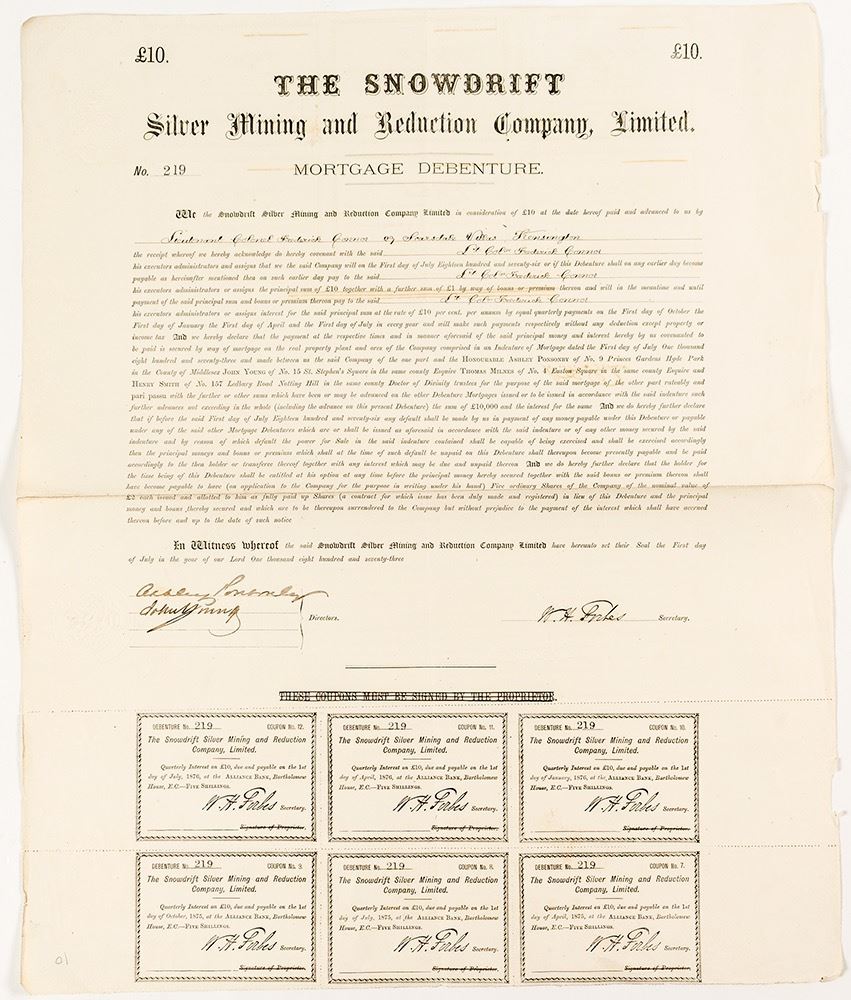 £10. £10.
THE SNOWDRIFT
Silver Mining and Reduction Company, Limited.
No. 219 MORTGAGE DEBENTURE.
We the Snowdrift Silver Mining and Reduction Company Limited in consideration of £10 at the date hereof paid and advanced to us by
Lieutenant Colonel Frederick Connor of Scarsdale Villas Kensington
the receipt whereof we hereby acknowledge do hereby covenant with the said Lt Coln Frederick Connor
his executors administrators and assigns that we the said Company will on the First day of July Eighteen hundred and seventy-six or if this Debenture shall on any earlier day become
payable as hereinafter mentioned then on such earlier day pay to the said Lt Coln Frederick Connor
his executors administrators or assigns the principal sum of £10 together with a further sum of £1 by way of bonus or premium thereon and will in the meantime and until
payment of the said principal sum and bonus or premium thereon pay to the said Lt Coln Frederick Connor
his executors administrators or assigns interest for the said principal sum at the rate of £10 per cent. per annum by equal quarterly payments on the First day of October the
First day of January the First day of April and the First day of July in every year and will make such payments respectively without any deduction except property or
income tax And we hereby declare that the payment at the respective times and in manner aforesaid of the said principal money and interest hereby by us covenanted to
be paid is secured by way of mortgage on the real property plant and area of the Company comprised in an Indenture of Mortgage dated the First day of July One thousand
eight hundred and seventy-three and made between us the said Company of the one part and the HONOURABLE ASHLEY PONSONBY of No. 9 Princes Gardens Hyde Park
in the County of Middlesex JOHN YOUNG of No. 15 St. Stephen's Square in the same county Esquire THOMAS MILNES of No. 4 Euston Square in the same county Esquire and
HENRY SMITH of No. 157 Ledbury Road Notting Hill in the same county Doctor of Divinity trustees for the purpose of the said mortgage of the other part rateably and
pari passu with the further or other sums which have been or may be advanced on the other Debenture Mortgages issued or to be issued in accordance with the said indenture such
further advances not exceeding in the whole (including the advance on this present Debenture) the sum of £10,000 and the interest for the same And we do hereby further declare
that if before the said First day of July Eighteen hundred and seventy-six any default shall be made by us in payment of any money payable under this Debenture or payable
under any of the said other Mortgage Debentures which are or shall be issued as aforesaid in accordance with the said indenture or of any other money secured by the said
indenture and by reason of which default the power for Sale in the said indenture contained shall be capable of being exercised and shall be exercised accordingly
then the principal moneys and bonus or premiums which shall at the time of such default be unpaid on this Debenture shall thereupon become presently payable and be paid
accordingly to the then holder or transferee thereof together with any interest which may be due and unpaid thereon And we do hereby further declare that the holder for
the time being of this Debenture shall be entitled at his option at any time before the principal money hereby secured together with the said bonus or premium thereon shall
have become payable to have (on application to the Company for the purpose in writing under his hand) Five ordinary Shares of the Company of the nominal value of
£2 each issued and allotted to him as fully paid up Shares (a contract for which issue has been duly made and registered) in lieu of this Debenture and the principal
money and bonus thereby secured and which are to be thereupon surrendered to the Company but without prejudice to the payment of the interest which shall have accrued
thereon before and up to the date of such notice
In Witness whereof the said Snowdrift Silver Mining and Reduction Company Limited have hereunto set their Seal the First day
of July in the year of our Lord One thousand eight hundred and seventy-three
Ashley Ponsonby
John Young Directors. W. H. Forbes Secretary.
THESE COUPONS MUST BE SIGNED BY THE PROPRIETOR.
DEBENTURE No. 219 COUPON No. 12.
The Snowdrift Silver Mining and Reduction
Company, Limited.
Quarterly Interest on £10, due and payable on the 1st
day of July, 1876, at the ALLIANCE BANK, Bartholomew
House, E.C.—FIVE SHILLINGS.
W. H. Forbes Secretary.
Signature of Proprietor.
DEBENTURE No. 219 COUPON No. 11.
The Snowdrift Silver Mining and Reduction
Company, Limited.
Quarterly Interest on £10, due and payable on the 1st
day of April, 1876, at the ALLIANCE BANK, Bartholomew
House, E.C.—FIVE SHILLINGS.
W. H. Forbes Secretary.
Signature of Proprietor.
DEBENTURE No. 219 COUPON No. 10.
The Snowdrift Silver Mining and Reduction
Company, Limited.
Quarterly Interest on £10, due and payable on the 1st
day of January, 1876, at the ALLIANCE BANK, Bartholomew
House, E.C.—FIVE SHILLINGS.
W. H. Forbes Secretary.
Signature of Proprietor.
DEBENTURE No. 219 COUPON No. 9.
The Snowdrift Silver Mining and Reduction
Company, Limited.
Quarterly Interest on £10, due and payable on the 1st
day of October, 1875, at the ALLIANCE BANK, Bartholomew
House, E.C.—FIVE SHILLINGS.
W. H. Forbes Secretary.
Signature of Proprietor.
DEBENTURE No. 219 COUPON No. 8.
The Snowdrift Silver Mining and Reduction
Company, Limited.
Quarterly Interest on £10, due and payable on the 1st
day of July, 1875, at the ALLIANCE BANK, Bartholomew
House, E.C.—FIVE SHILLINGS.
W. H. Forbes Secretary.
Signature of Proprietor.
DEBENTURE No. 219 COUPON No. 7.
The Snowdrift Silver Mining and Reduction
Company, Limited.
Quarterly Interest on £10, due and payable on the 1st
day of April, 1875, at the ALLIANCE BANK, Bartholomew
House, E.C.—FIVE SHILLINGS.
W. H. Forbes Secretary.
Signature of Proprietor.